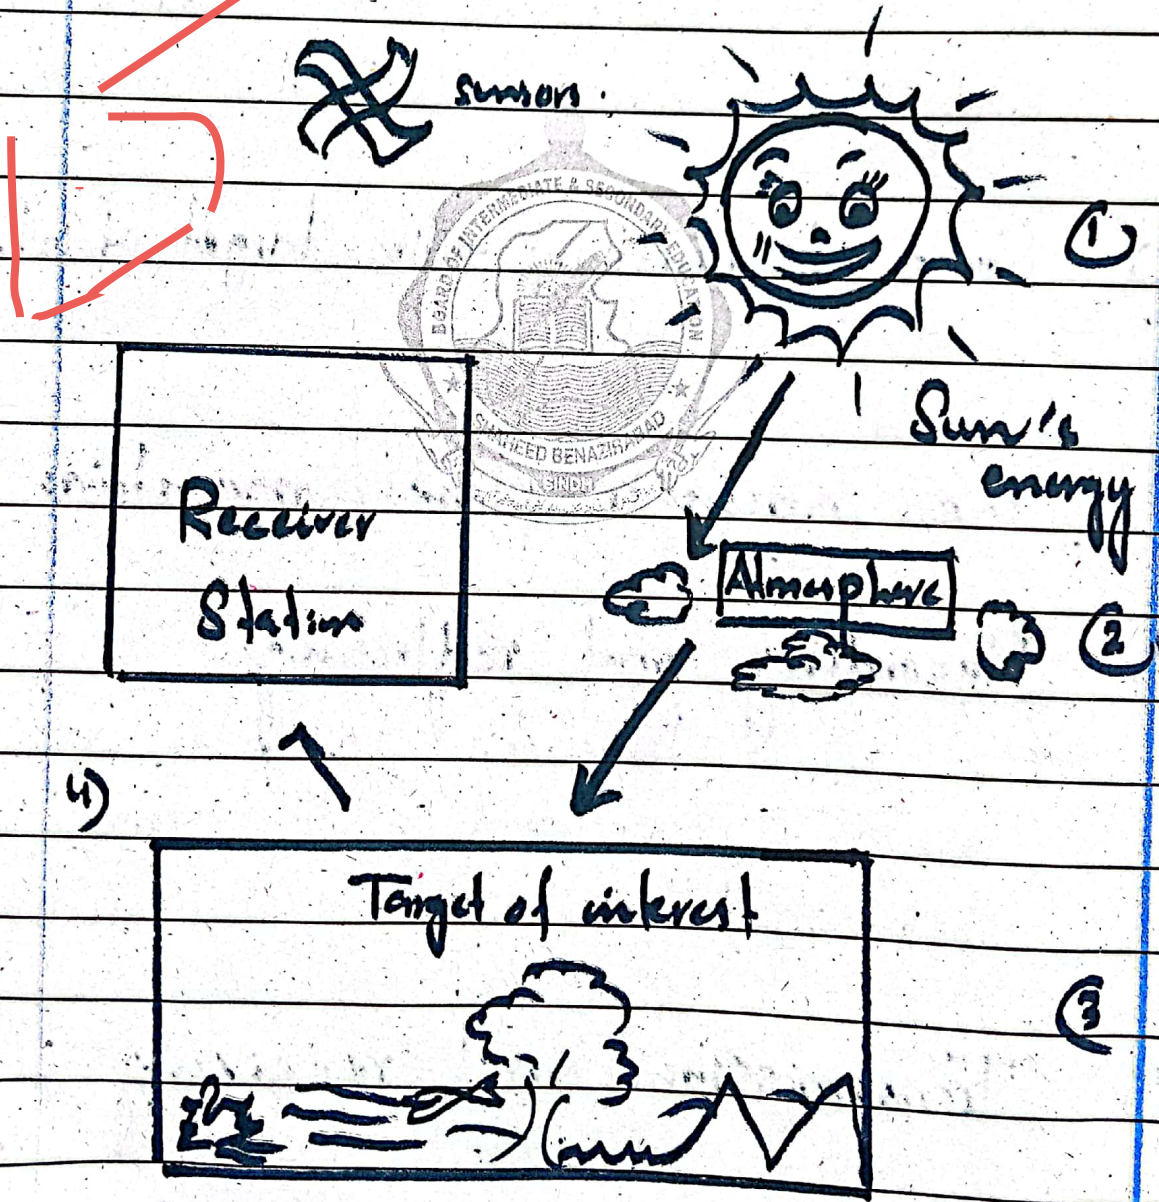 sensors.
①
BOARD OF INTERMEDIATE & SECONDARY EDUCATION
SHAHEED BENAZIRABAD
SINDH
Sun's
energy
Receiver
Station
Atmosphere
②
4)
Target of interest
③